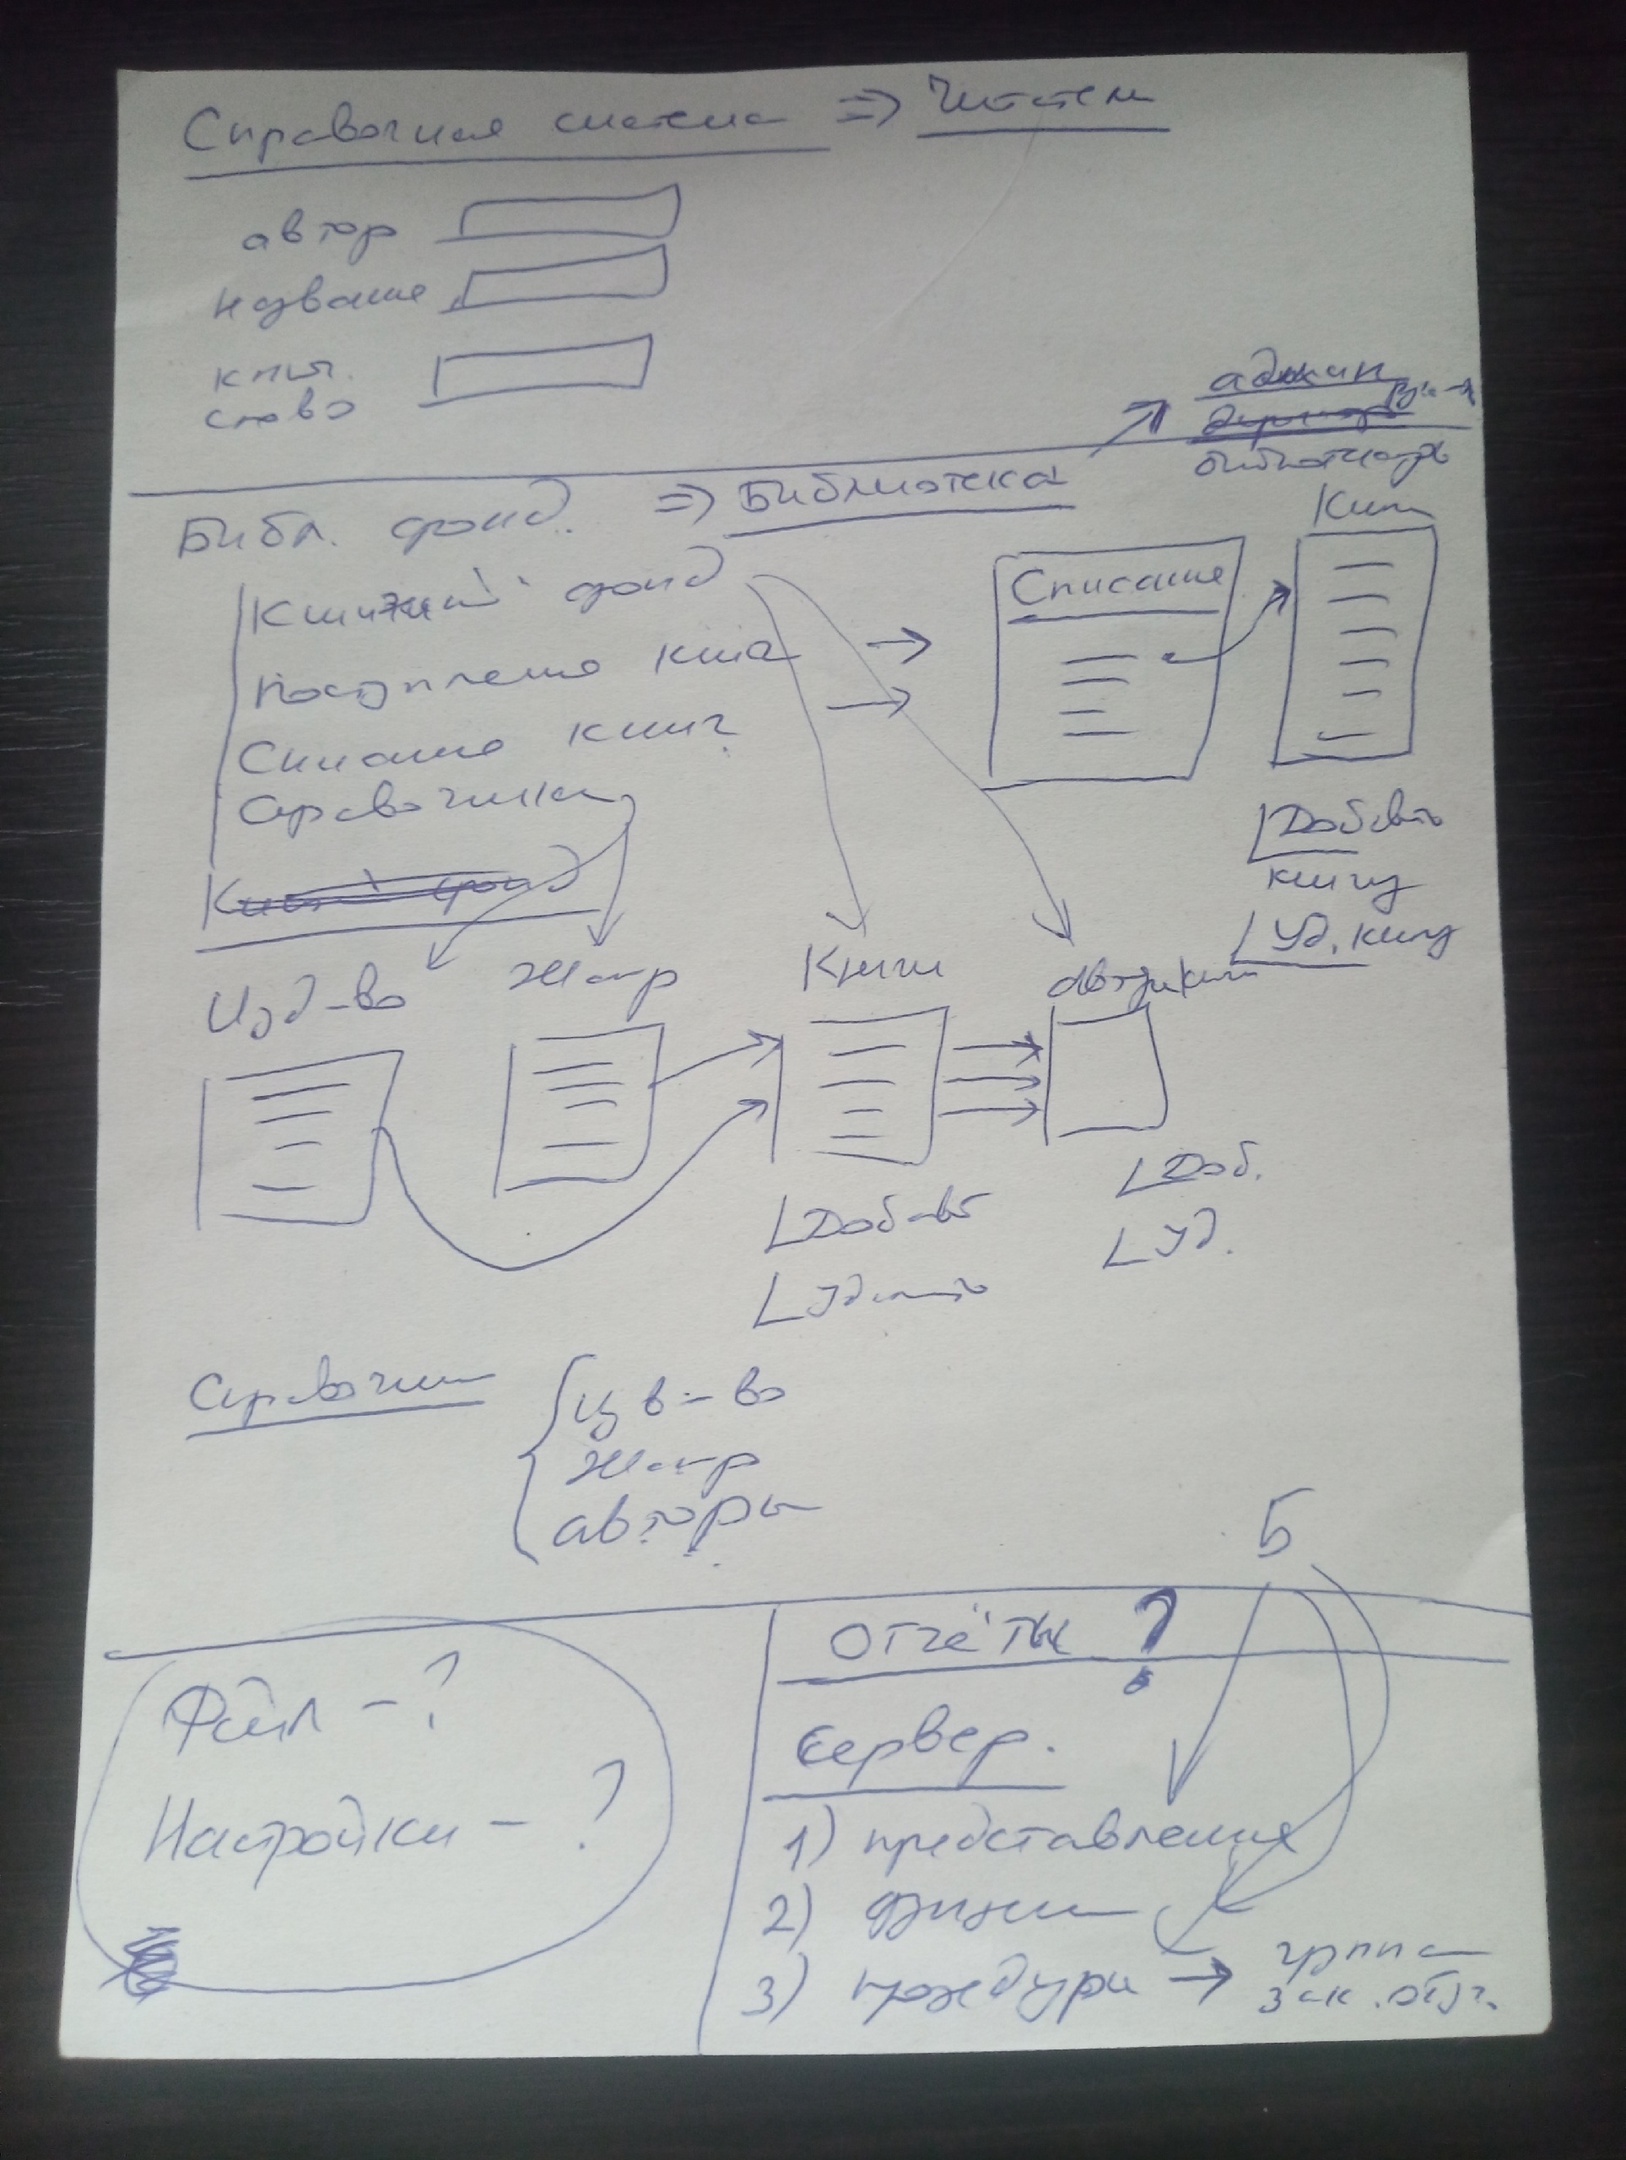 Справочная система => Читатели
автор
название
ключ.
слово
админ
библиотекарь
Библ. фонд. => Библиотека
Книги
Книжный фонд
Списание
Поступление книг
Списание книг
Справочники
Добавить
книгу
Уд. книгу
Изд-во
Жанр
Книги
Добавить
Удалить
Доб.
Уд.
Справочники
Изд-во
Жанр
авторы
5
Отчёты ?
Файл - ?
Настройки - ?
Сервер.
1) представления
2) функции
3) процедуры → группа